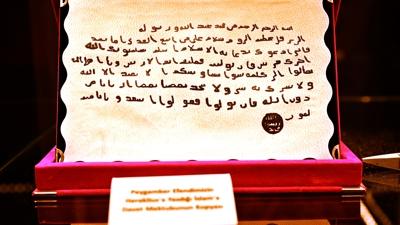 بسم الله الرحمن الرحيم من محمد عبد الله ورسوله
الى هرقل عظيم الروم سلام على من اتبع الهدى اما بعد
فانى ادعوك بدعاية الاسلام اسلم تسلم يوتك الله
اجرك مرتين فان توليت فعليك اثم الاريسيين ويا اهل الكتاب
تعالوا الى كلمة سوا بيننا وبينكم الا نعبد الا الله
ولا نشرك به شيا ولا يتخذ بعضنا بعضا اربابا من
دون الله فان تولوا فقولوا اشهدوا بانا مسل
مون
Peygamber Efendimizin
Heraklius'a Yazdığı İslam'a
Davet Mektubunun Kopyası